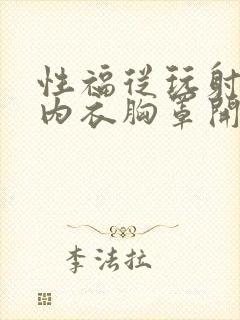 性福從玩射
內衣胸罩開
李法拉